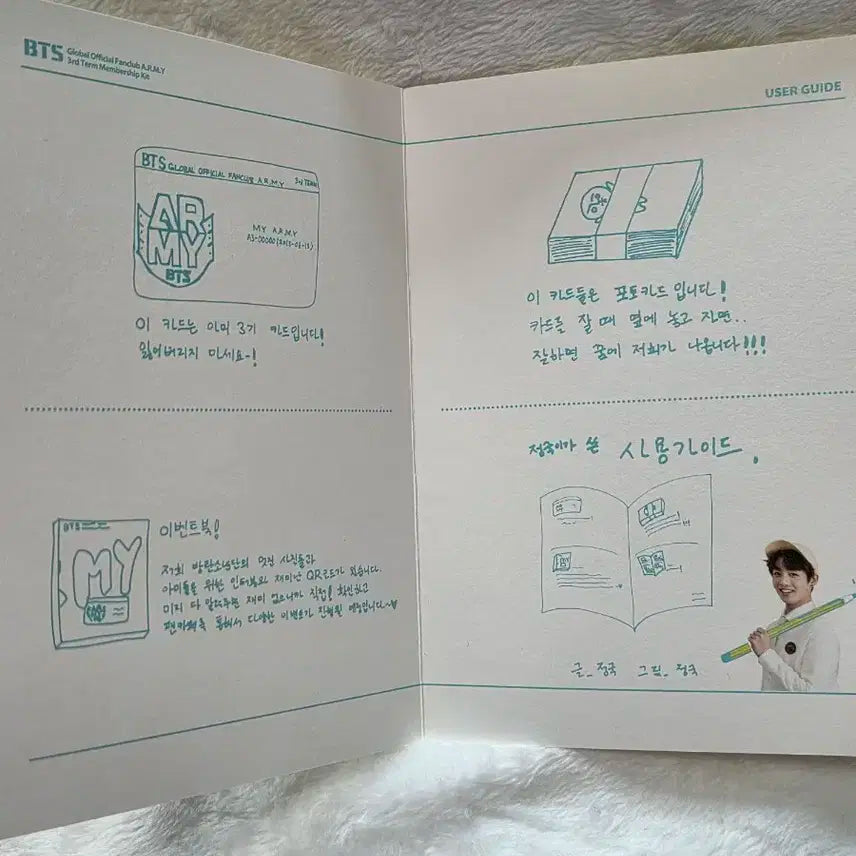 BTS Global Official Fanclub A.R.M.Y
3rd Term Membership Kit
BTS GLOBAL OFFICIAL FANCLUB A.R.M.Y 3rd TERM
ARMY
BTS
MY A.R.M.Y
이 카드는 아미 3기 카드입니다!
잃어버리지 마세요~!
BTS
MY
이벤트북!
저희 방탄소년단의 멋진 사진들과
아미들을 위한 인터뷰와 재미난 QR코드가 있습니다.
미리 다 알려주면 재미 없으니까 직접! 확인하고
팬마케팅을 통해서 다양한 이벤트가 진행될 예정입니다~♥
USER GUIDE
이 카드들은 포토카드 입니다!
카드를 잘 때 옆에 놓고 자면..
잘하면 꿈에 저희가 나옵니다!!!
정국이가 쓴 사용가이드.
글_정국 그림_정국